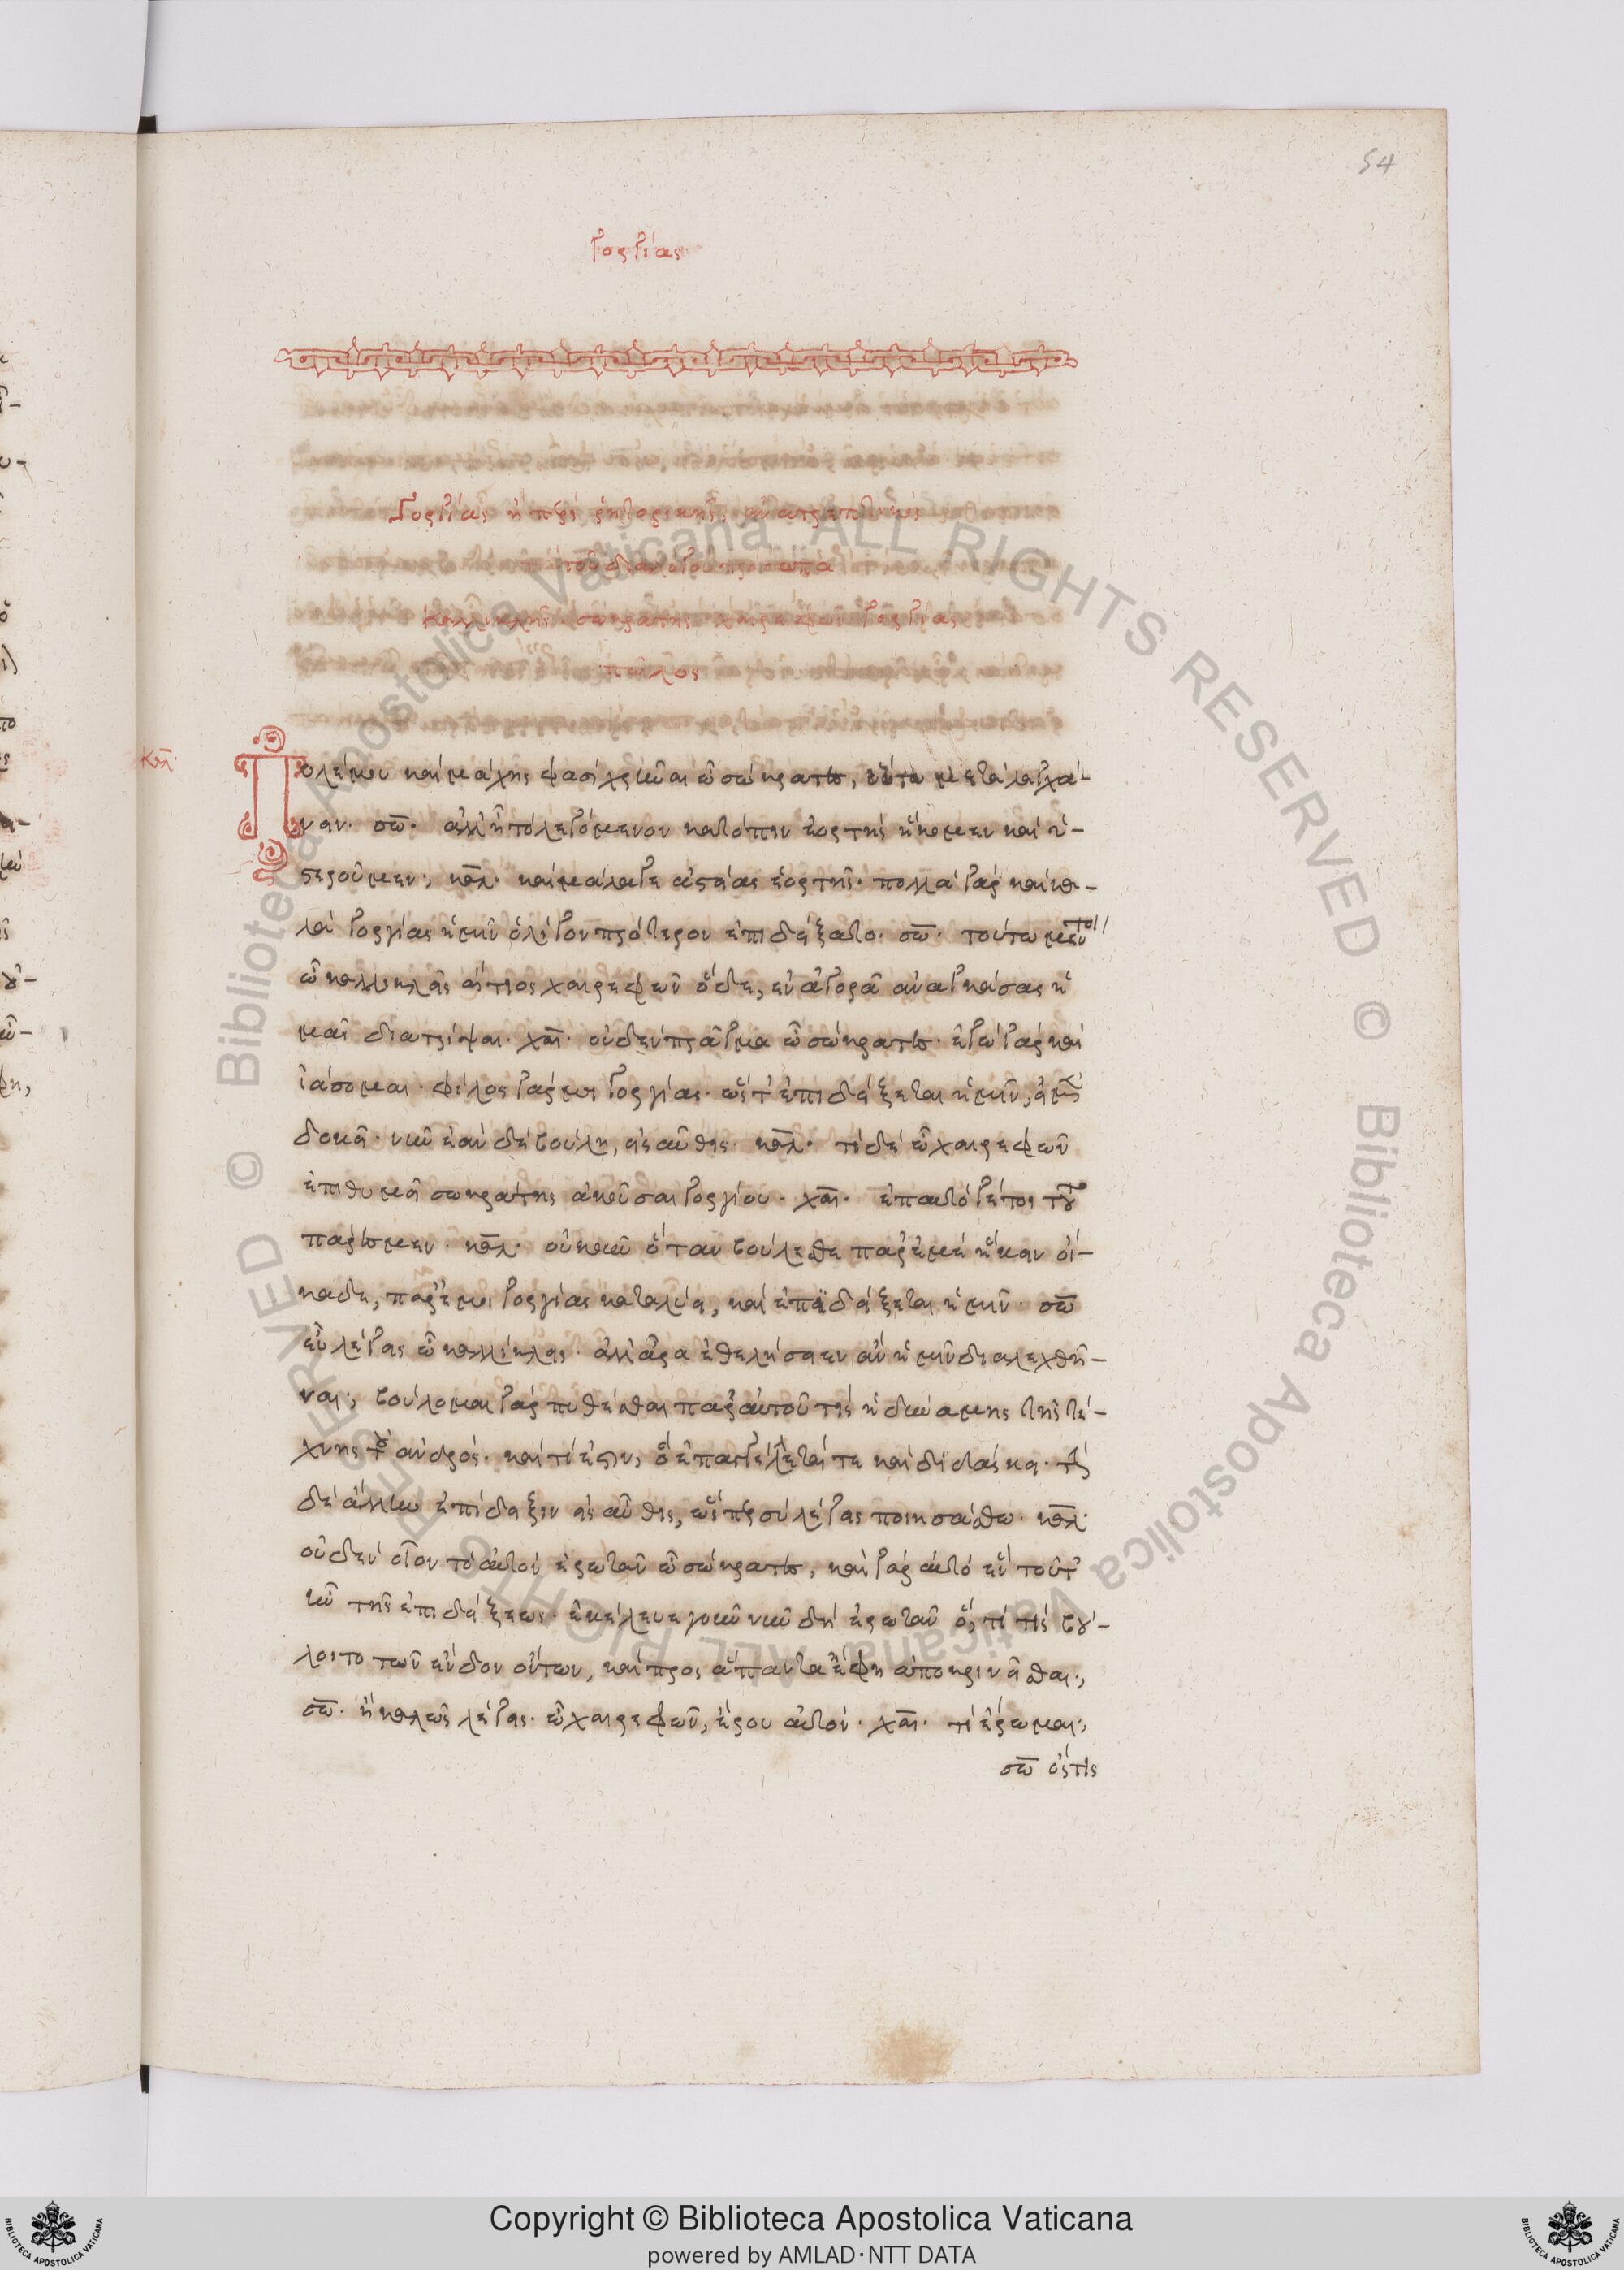 54
Γοργίας
Γοργίας ἢ περὶ ῥητορικῆς, ἀνατρεπτικός
τοῦ διαλόγου πρόσωπα
καλλικλῆς σωκράτης χαιρεφῶν Γοργίας
πῶλος
καλ
Πολέμου καὶ μάχης φασὶ χρῆναι ὦ σώκρατες, οὕτω μεταλαγχά-
νειν. σω. ἀλλ' ἦ τὸ λεγόμενον κατόπιν ἑορτῆς ἥκομεν καὶ ὑ-
στεροῦμεν; καλ. καὶ μάλα γε ἀστείας ἑορτῆς. πολλὰ γὰρ καὶ κα-
λὰ Γοργίας ἡμῖν ὀλίγον πρότερον ἐπεδείξατο. σω. τούτων μέντοι
ὦ καλλίκλεις αἴτιος χαιρεφῶν ὅδε, ἐν ἀγορᾶ ἀναγκάσας ἡ
μᾶς διατρίψαι. χαι. οὐδὲν πρᾶγμα ὦ σώκρατες. ἐγὼ γὰρ καὶ
ἰάσομαι. φίλος γάρ μοι Γοργίας. ὥστ' ἐπιδείξεται ἡμῖν, εἰ μὲν
δοκεῖ. νῦν ἐὰν δὲ βούλη, εἰς αὖθις. καλ. τί δὲ ὦ χαιρεφῶν
ἐπιθυμεῖ σωκράτης ἀκοῦσαι Γοργίου. χαι. ἐπ' αὐτό γέ τοι τοῦτο
πάρεσμεν. καλ. οὐκοῦν ὅταν βούλεσθε παρ' ἐμὲ ἥκειν οἴ-
καδε, παρ' ἐμοὶ Γοργίας καταλύει, καὶ ἐπιδείξεται ἡμῖν. σω
εὖ λέγεις ὦ καλλίκλεις. ἀλλ' ἆρα ἐθελήσειεν ἂν ἡμῖν διαλεχθῆ-
ναι; βούλομαι γὰρ πυθέσθαι παρ' αὐτοῦ τίς ἡ δύναμις τῆς τέ-
χνης τοῦ ἀνδρός. καὶ τί ἐστιν, ὃ ἐπαγγέλλεταί τε καὶ διδάσκει. τὴν
δὲ ἄλλην ἐπίδειξιν εἰς αὖθις, ὥσπερ σὺ λέγεις ποιησάσθω. καλ.
οὐδὲν οἷον τὸ αὐτὸν ἐρωτᾶν ὦ σώκρατες, καὶ γὰρ αὐτὸ ἓν τοῦτ'
ἦν τῆς ἐπιδείξεως. ἐκέλευε γοῦν νῦν δὴ ἐρωτᾶν ὅ, τι τίς βού-
λοιτο τῶν ἔνδον ὄντων, καὶ πρὸς ἅπαντα ἔφη ἀποκρινεῖσθαι;
σω. ἦ καλῶς λέγεις. ὦ χαιρεφῶν, ἐροῦ αὐτόν. χαι. τί ἔρωμαι;
σω ὅστις
Copyright © Biblioteca Apostolica Vaticana
powered by AMLAD·NTT DATA